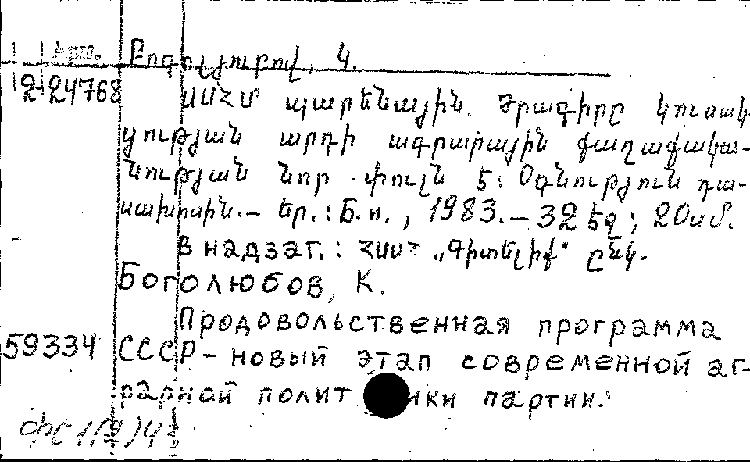 Բոգոլյուբով, Կ.
2-24768 ՍՍՀՄ պարենային ծրագիրը կուսակ-
ցության արդի ագրարային քաղաքակա-
նության նոր փուլն է: Օգնություն դա-
սախոսին.- Եր.: Б.и., 1983.- 32 էջ; 20սմ.
В надзаг.: ՀՍՍՀ „Գիտելիք" ընկ.
Боголюбов, К.
Продовольственная программа
59334 СССР - новый этап современной аг-
рарной политики партии.